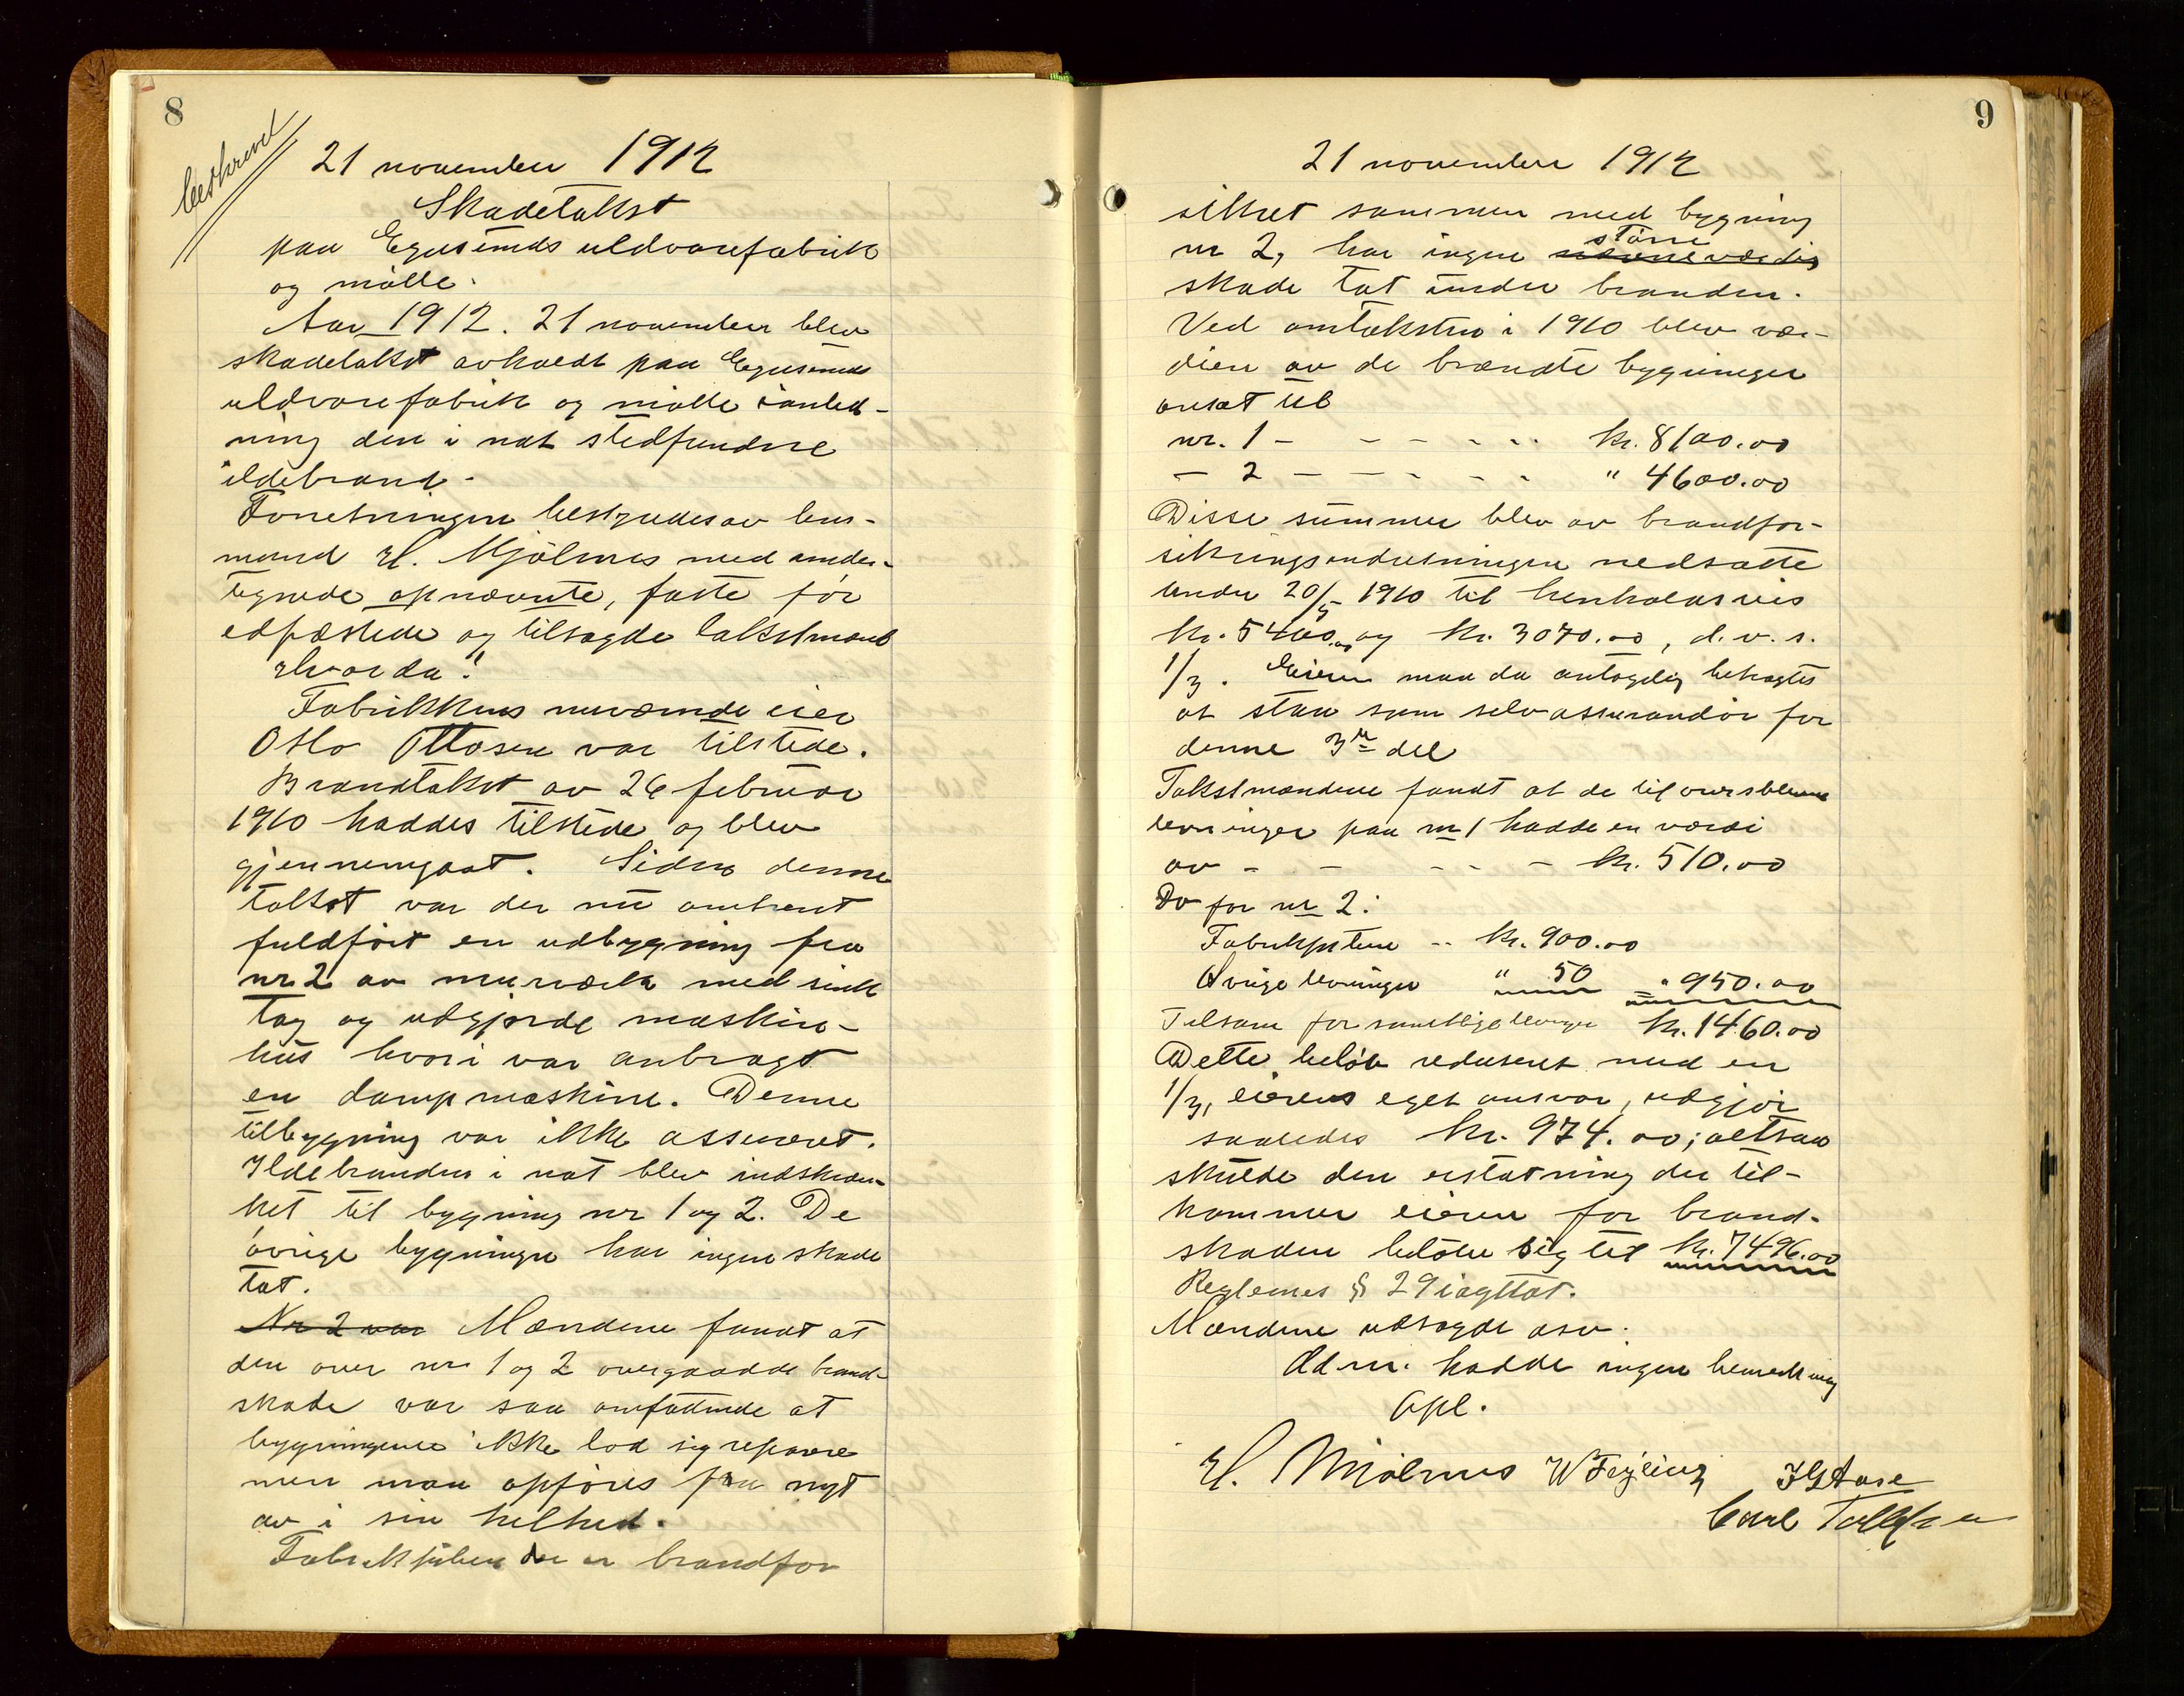 8
beskrevet
21 november 1912
Skadetakst
paa Egersunds uldvarefabrik
og mølle.
Aar 1912. 21 november blev
skadetakst avholdt paa Egersunds
uldvarefabrik og mølle i anled-
ning den i nat stedfundne
ildebrand.
Forretningen bestyredes av lens-
mand H. Mjølnes med under-
tegnede opnævnte, faste før
edfæstede og tilsagde takstmænd
Hvorda:
Fabrikkens nuværende eier
Otto Ottosen var tilstede.
Brandtakst av 26 februar
1910 haddes tilstede og blev
gjennemgaat. Siden denne
takst var der nu omtrent
fuldført en udbygning fra
nr 2 av murværk med sink
tag og udgjorde maskin-
hus hvori var anbragt
en dampmaskine. Denne
tilbygning var ikke assureret.
Ildebranden i nat blev indskræn-
ket til bygning nr 1 og 2. De
øvrige bygninger har ingen skade
tat.
Nr 2 var Mændene fandt at
den over nr 1 og 2 overgaadde brand-
skade var saa omfattende at
bygningene ikke lod sig reparere
men maa opføres fra nyt
av i sin helhed.
Fabrikpiben der er brandfor
9
21 november 1912
sikret sammen med bygning
større
nr 2, har ingen nævneværdig
skade tat under branden.
Ved omtaksten i 1910 blev vær-
dien av de brændte bygninger
ansat til
nr. 1 - - - - - - kr. 8100.00
- 2 - - - - - - " 4600.00
Disse summer blev av brandfor-
sikringsindretningen nedsatte
under 20/5 1910 til henholdsvis
kr. 5400.00 og kr. 3070.00, d. v. s.
1/3. Eieren maa da antagelig betragtes
at staa som selvassurandør for
denne 3die del
Takstmændene fandt at de tiloversblevne
levninger paa nr 1 hadde en værdi
av - - - - - kr. 510.00
Do for nr 2:
Fabrikpiben -- kr. 900.00
Øvrige levninger " 50 = " 950.00
Tilsam for samtlige levninger kr. 1460.00
Dette beløb redusert med en
1/3, eierens eget ansvar, udgjør
saaledes kr. 974.00; altsaa
skulde den erstatning der til-
kommer eieren for brand-
skaden beløbe sig til kr. 7496.00
Reglernes § 29 iagttat.
Mændene udsagde asv.
Adm. hadde ingen bemerkning
Opl.
H. Mjølnes W Feyling
Carl Tollefsen